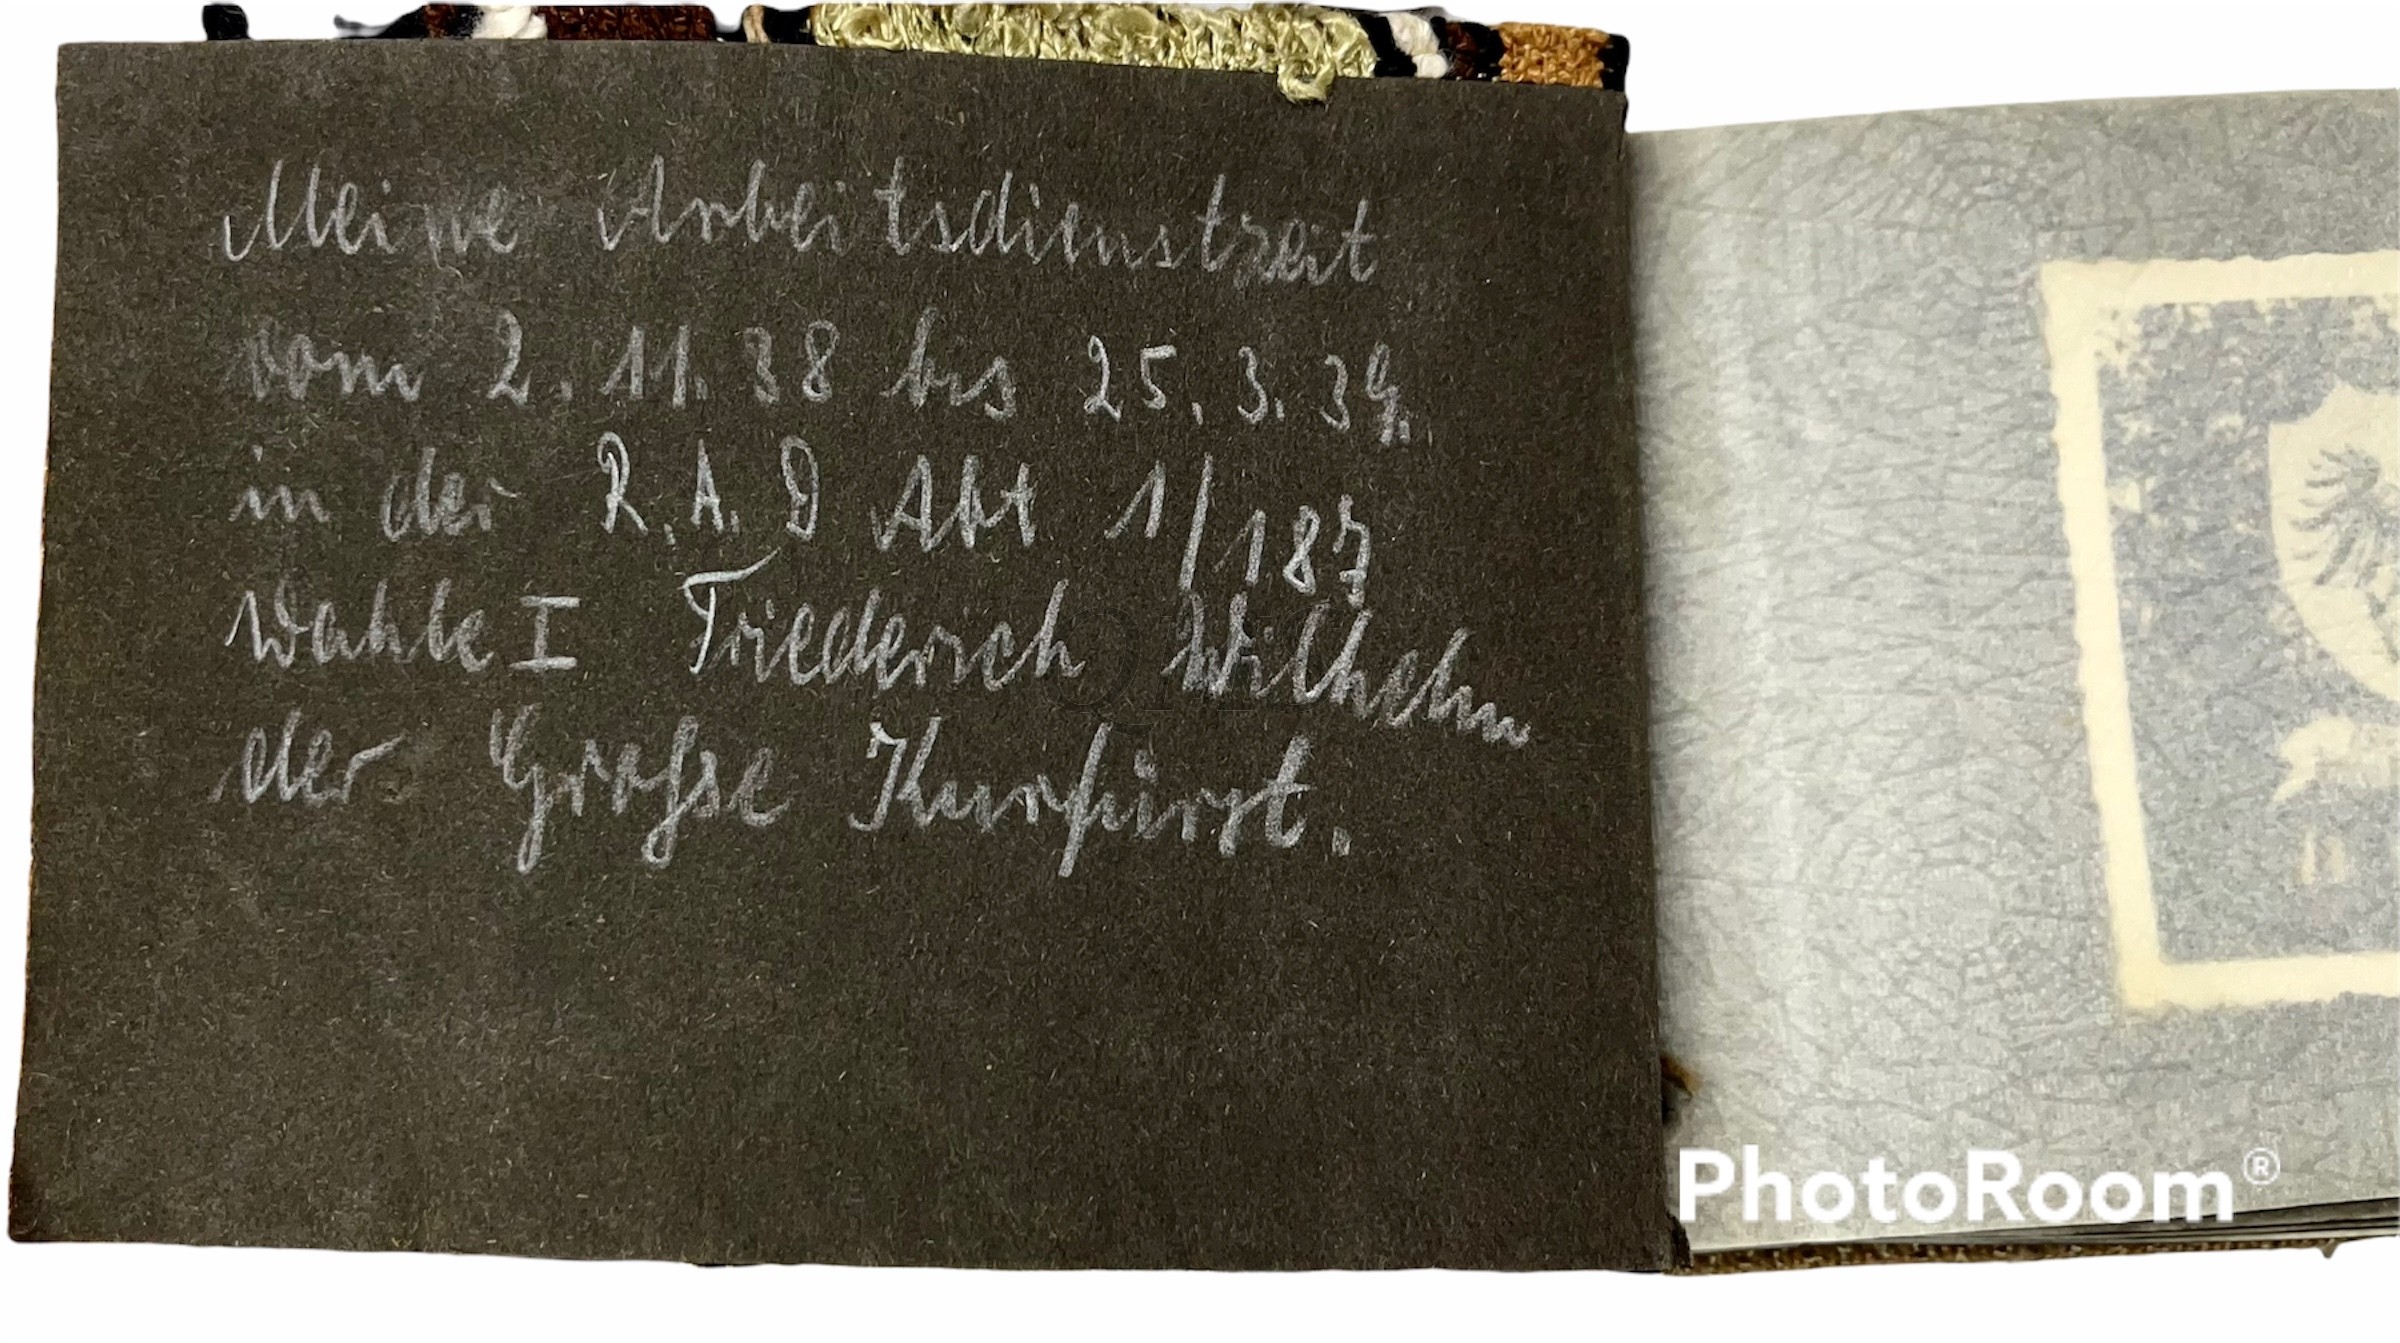 Meine Arbeitsdienstzeit
vom 2. 11. 38 bis 25. 3. 39.
in der R.A.D Abt 1/187
Wahle I Friederich Wilhelm
der Grosse Kurfürst.
PhotoRoom®